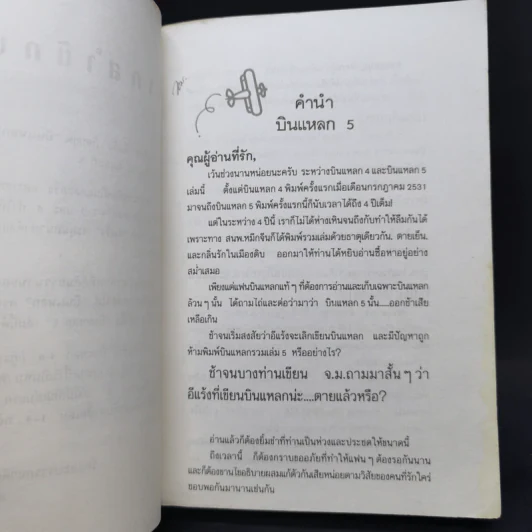 คำนำ
บินแหลก 5
คุณผู้อ่านที่รัก,
เว้นช่วงนานหน่อยนะครับ ระหว่างบินแหลก 4 และบินแหลก 5
เล่มนี้ ตั้งแต่บินแหลก 4 พิมพ์ครั้งแรกเมื่อเดือนกรกฎาคม 2531
มาจนถึงบินแหลก 5 พิมพ์ครั้งแรกนี้ก็นับเวลาได้ถึง 4 ปีเต็ม!
แต่ในระหว่าง 4 ปีนี้ เราก็ไม่ได้ห่างเหินจนถึงกับทำให้ลืมกันได้
เพราะทาง สนพ.หมึกจีนก็ได้พิมพ์รวมเล่มด้วยธาตุเดียวกัน, ตายเย็น,
และกลิ่นรักในเมืองดิบ ออกมาให้ท่านได้หยิบอ่านชื่อหาอยู่อย่าง
สม่ำเสมอ
เพียงแต่แฟนบินแหลกแท้ ๆ ที่ต้องการอ่านและเก็บเฉพาะบินแหลก
ล้วน ๆ นั้น ได้ถามไถ่และต่อว่ามาว่า บินแหลก 5 นั้น....ออกช้าเสีย
เหลือเกิน
ช้าจนเริ่มสงสัยว่าอีแร้งจะเลิกเขียนบินแหลก และมีปัญหาถูก
ห้ามพิมพ์บินแหลกรวมเล่ม 5 หรืออย่างไร?
ช้าจนบางท่านเขียน จ.ม.ถามมาสั้น ๆ ว่า
อีแร้งที่เขียนบินแหลกน่ะ....ตายแล้วหรือ?
อ่านแล้วก็ต้องยิ้มขำที่ท่านเป็นห่วงและประชดให้ขนาดนี้
ถึงเวลานี้ ก็ต้องกราบขออภัยที่ทำให้แฟน ๆ ต้องรอกันนาน
และก็ต้องขานไขอธิบายผสมแก้ตัวกันเสียหน่อยตามวิสัยของคนที่รักใคร่
ชอบพอกันมานานเช่นกัน